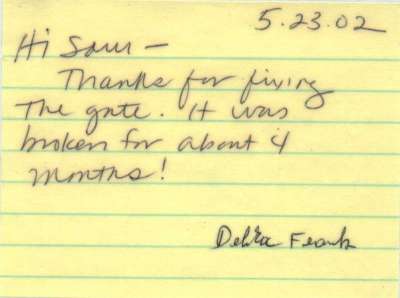 5.23.02
Hi Sam –
Thanks for fixing
the gate. It was
broken for about 4
months!
Debra Frank